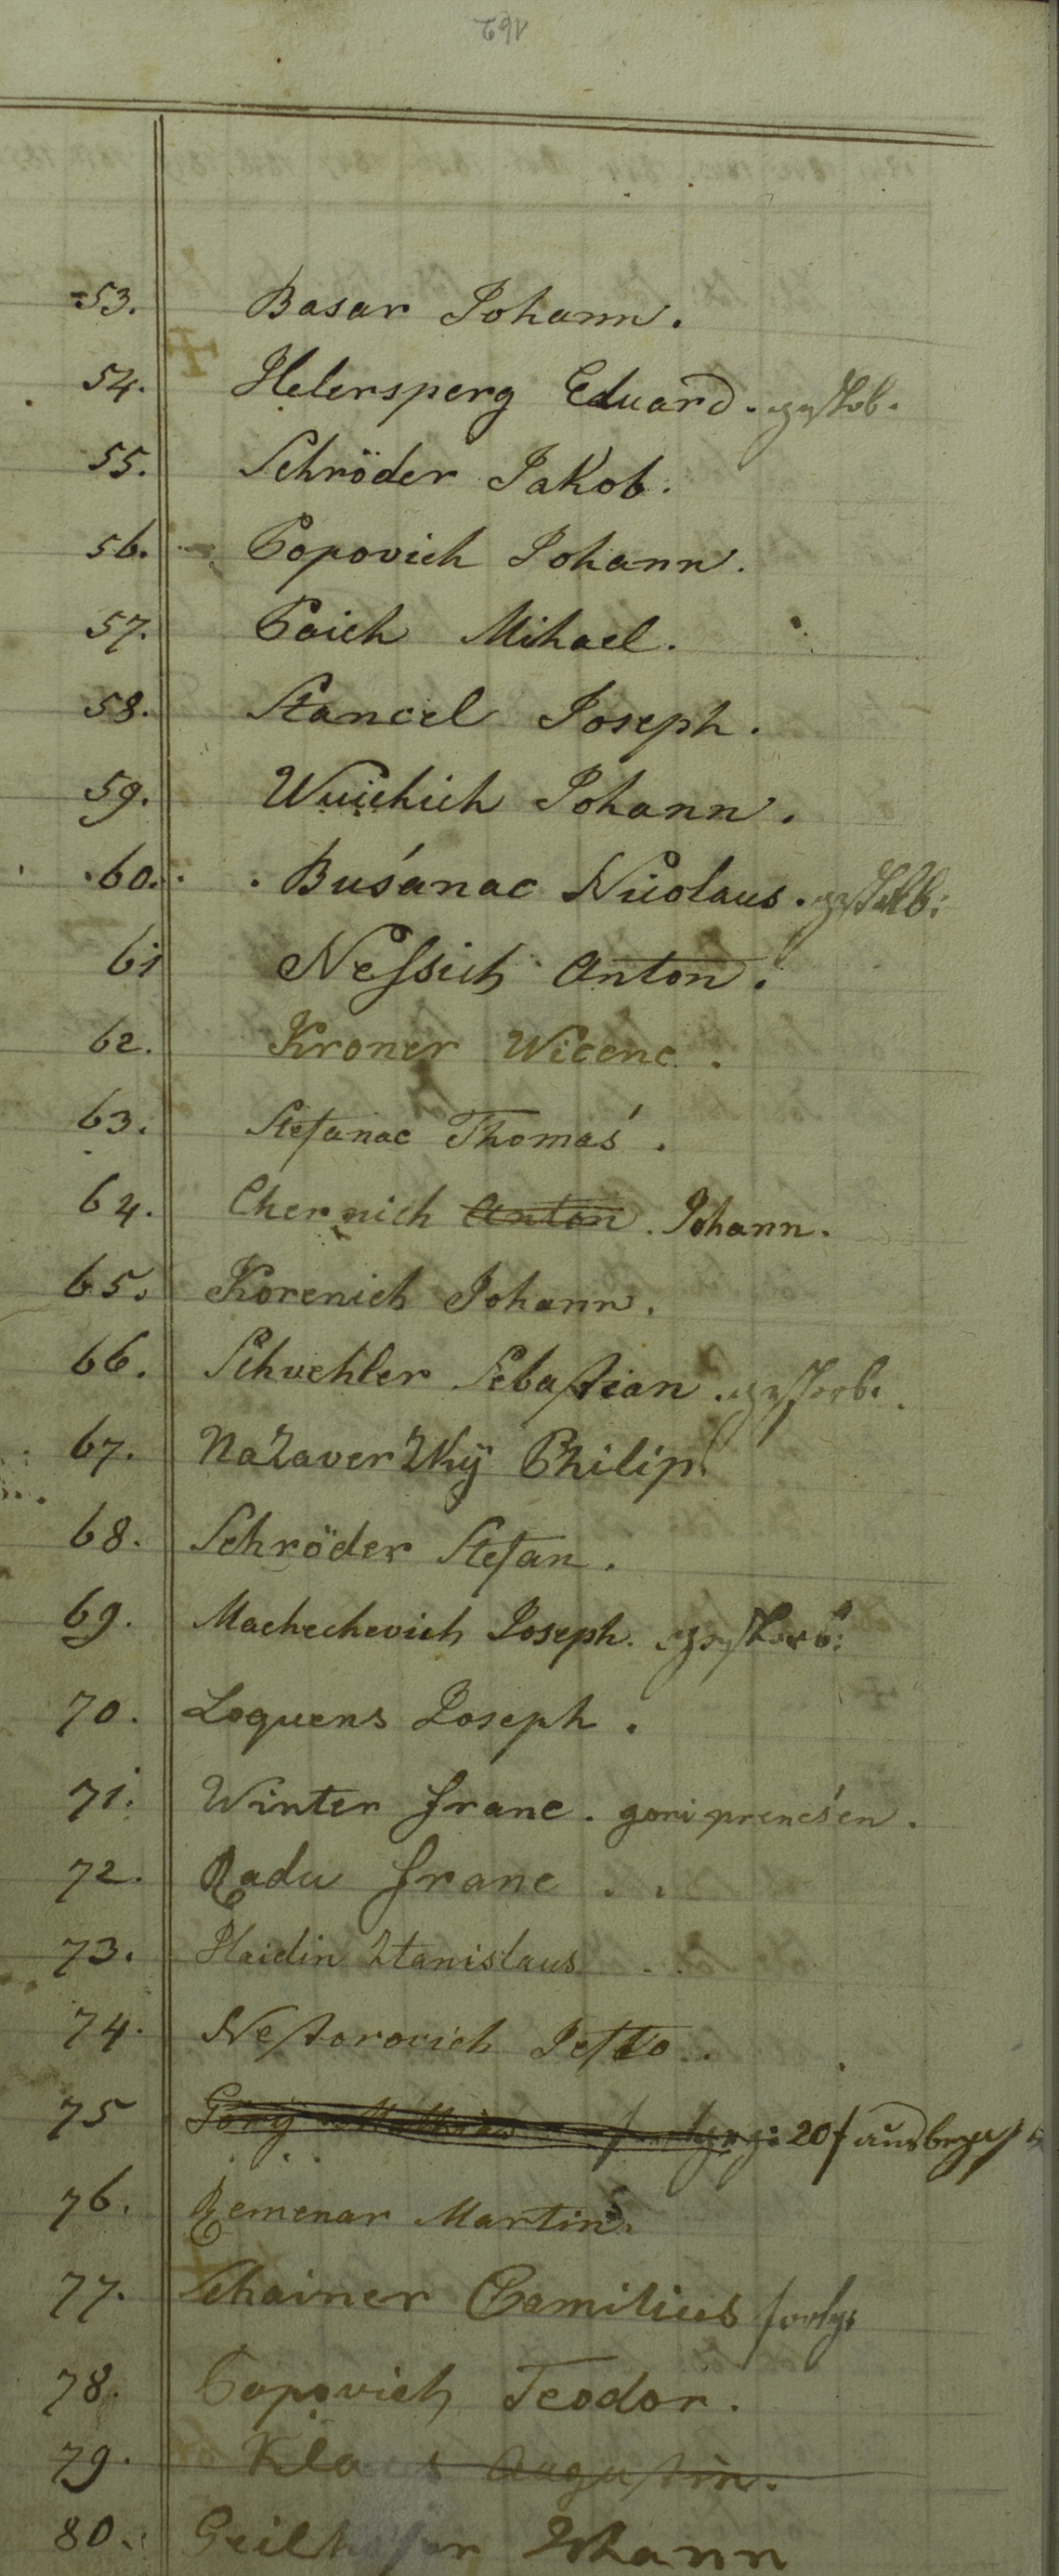 162
53. Basar Johann.
54. Helersperg Eduard. gestob.
55. Schröder Jakob.
56. Popovich Johann.
57. Poich Mihael.
58. Stancel Joseph.
59. Wuichich Johann.
60. Buśanac Nicolaus.
61 Nessich Anton.
62. Kroner Wicenc.
63. Stefanac Thomaś.
64. Chernich Anton. Johann.
65. Korenich Johann.
66. Schvehler Sebastian. gestorb.
67. Philip.
68. Schröder Stefan.
69. Machechevich Joseph. gestorb:
70. Loquens Joseph.
71. Winter Franc. gori prencśen.
72. Radu Franc..
73. Haidin Stanislaus
74. Nestorovich Jefto..
75 Göry 20 f ausbezalt
76. Remenar Martin.
77. Schainer Camilius
78. Popovich Teodor.
79. Augustin.
80. Johann